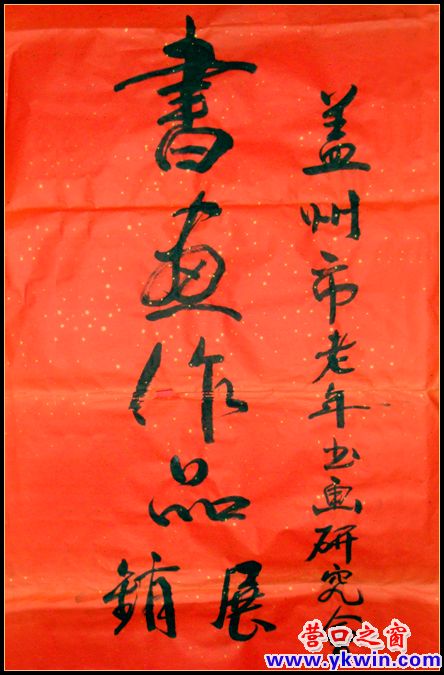 盖州市老年书画研究会
書畫作品
展銷
营口之窗
www.ykwin.com